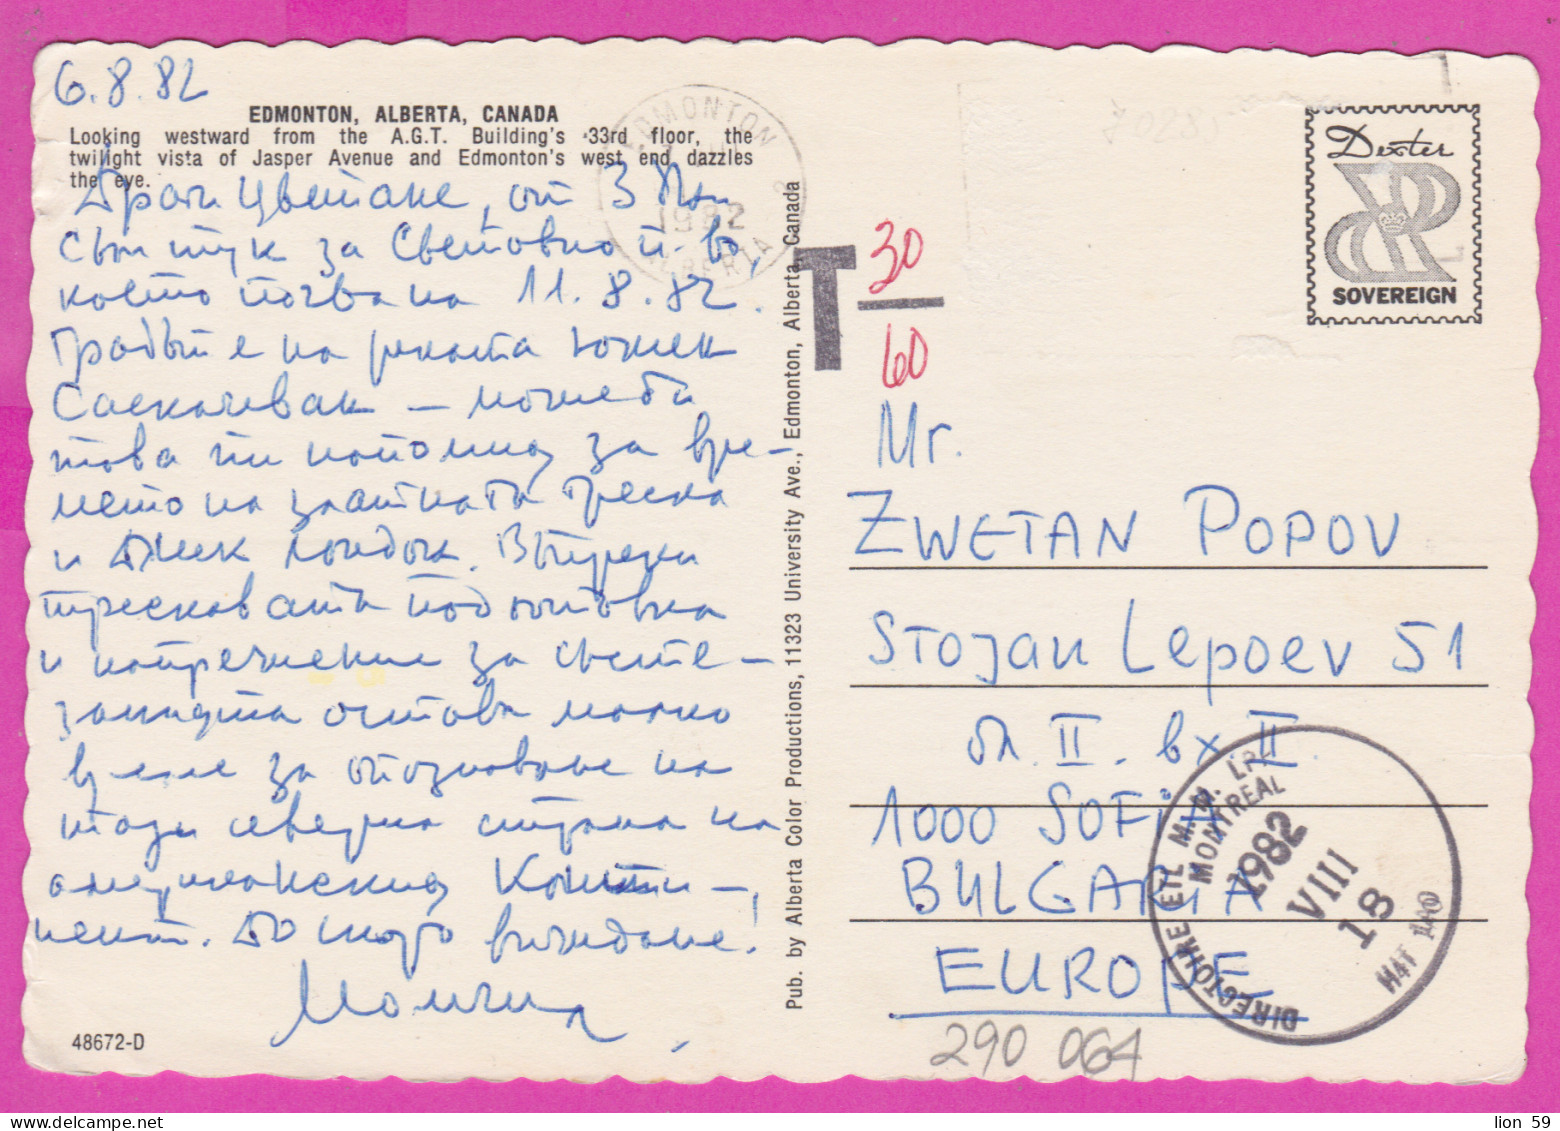 6.8.82
EDMONTON, ALBERTA, CANADA
Looking westward from the A.G.T. Building's 33rd floor, the
twilight vista of Jasper Avenue and Edmonton's west end dazzles
the eye.
Драги Цветане, от 3
съм тук за Световно п-во,
което почва на 11.8.82.
Градът е на реката
Саскачеван — може би
това ти напомня за вре-
мето на златната треска
и Джек Лондон. Въпреки
трескавата подготовка
и напрежение за състе-
занията остава малко
време за опознаване на
тази северна страна на
американския Конти-
нент. До скоро виждане!
48672-D
Pub. by Alberta Color Productions, 11323 University Ave., Edmonton, Alberta, Canada
EDMONTON
1982
ALBERTA
T 30
60
Dexter
SOVEREIGN
Mr.
ZWETAN POPOV
STOJAN Lepoev 51
бл. II. вх II
1000 SOFIA
BULGARIA
EUROPE
DIRECTOIRE ETL M.M.M. LP
MONTREAL
1982
VIII
18
290 064
lion 59